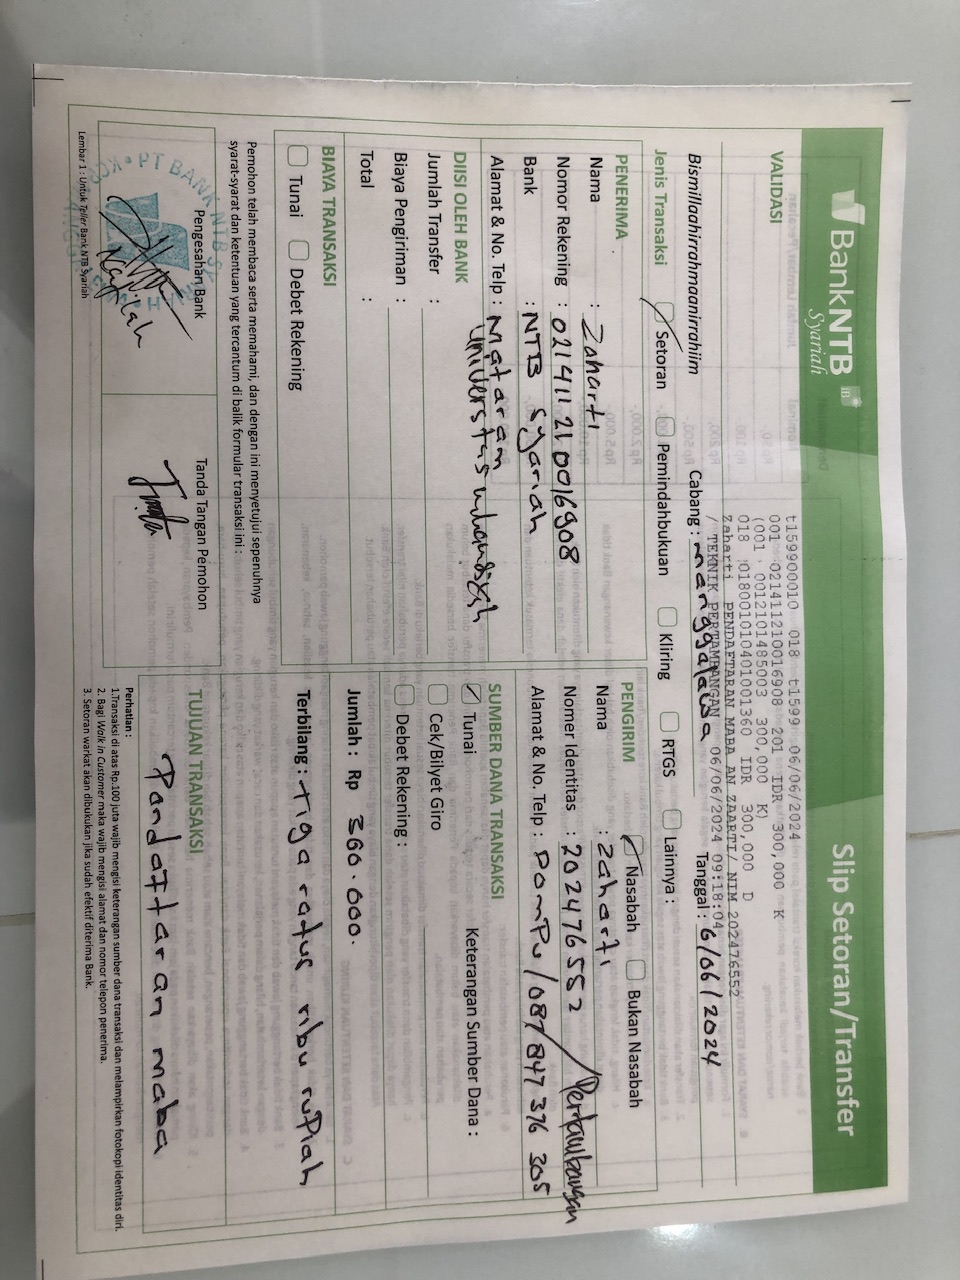 BankNTB
Syariah
Slip Setoran/Transfer
VALIDASI
t159900010 018 t1599 06/06/2024
001 021411210016908 201 IDR 300,000 K
(001 0012101485003 300,000 K)
018 018001010401001360 IDR 300,000 D
Zaharti PENDAFTARAN MABA AN ZAARTI/ NIM 202476552
/ TEKNIK PERTAMBANGAN 06/06/2024 09:18:04
Bismillaahirrahmaanirrahiim
Cabang : manggalewa
Tanggal : 6/06/2024
Jenis Transaksi
Setoran
Pemindahbukuan
Kliring
RTGS
Lainnya :
PENERIMA
Nama : Zaharti
Nomor Rekening : 021411210016908
Bank : NTB Syariah
Alamat & No. Telp : Mataram
PENGIRIM
Nasabah
Bukan Nasabah
Nama : Zaharti
Nomer Identitas : 202476552 / Pertambangan
Alamat & No. Telp : DOMPU/087 847 376 305
DIISI OLEH BANK
Jumlah Transfer :
Biaya Pengiriman :
Total :
SUMBER DANA TRANSAKSI
Tunai
Keterangan Sumber Dana :
Cek/Bilyet Giro
Debet Rekening :
BIAYA TRANSAKSI
Tunai
Debet Rekening
Jumlah : Rp 300.000.
Terbilang : Tiga ratus ribu rupiah
Pemohon telah membaca serta memahami, dan dengan ini menyetujui sepenuhnya
syarat-syarat dan ketentuan yang tercantum di balik formular transaksi ini :
Pengesahan Bank
Tanda Tangan Pemohon
TUJUAN TRANSAKSI
Pandaftaran maba
Perhatian :
1.Transaksi di atas Rp.100 juta wajib mengisi keterangan sumber dana transaksi dan melampirkan fotokopi identitas diri.
2. Bagi Walk in Customer maka wajib mengisi alamat dan nomor telepon penerima.
3. Setoran warkat akan dibukukan jika sudah efektif diterima Bank.
Lembar 1 : Untuk Teller Bank NTB Syariah